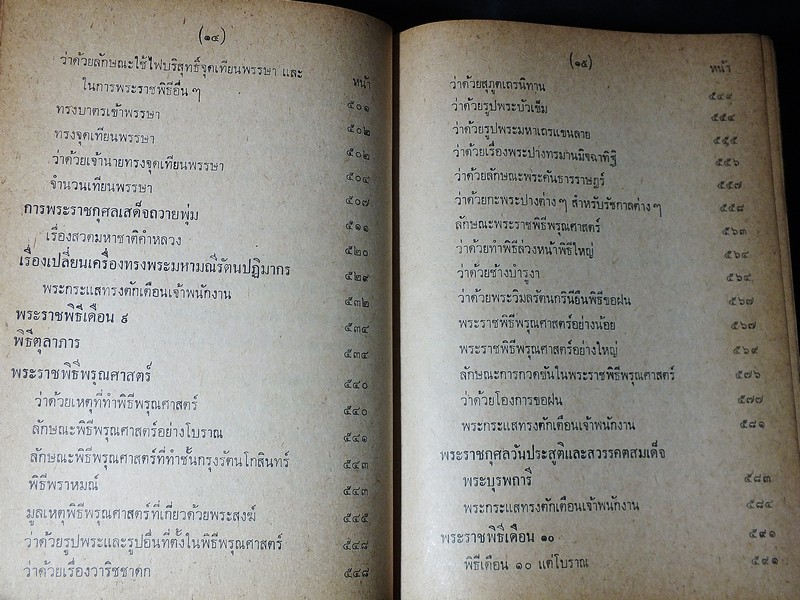 (๑๔)
หน้า
ว่าด้วยลักษณะใช้ไฟบริสุทธิ์จุดเทียนพรรษา และ
ในการพระราชพิธีอื่น ๆ ๕๐๑
ทรงบาตรเข้าพรรษา ๕๐๒
ทรงจุดเทียนพรรษา ๕๐๒
ว่าด้วยเจ้านายทรงจุดเทียนพรรษา ๕๐๔
จำนวนเทียนพรรษา ๕๐๗
การพระราชกุศลเสด็จถวายพุ่ม ๕๑๑
เรื่องสวดมหาชาติคำหลวง ๕๒๐
เรื่องเปลี่ยนเครื่องทรงพระมหามณีรัตนปฏิมากร ๕๒๙
พระกระแสทรงตักเตือนเจ้าพนักงาน ๕๓๒
พระราชพิธีเดือน ๙ ๕๓๔
พิธีตุลาภาร ๕๓๔
พระราชพิธีพรุณศาสตร์ ๕๔๐
ว่าด้วยเหตุที่ทำพิธีพรุณศาสตร์ ๕๔๐
ลักษณะพิธีพรุณศาสตร์อย่างโบราณ ๕๔๑
ลักษณะพิธีพรุณศาสตร์ที่ทำชั้นกรุงรัตนโกสินทร์ ๕๔๓
พิธีพราหมณ์ ๕๔๓
มูลเหตุพิธีพรุณศาสตร์ที่เกี่ยวด้วยพระสงฆ์ ๕๔๕
ว่าด้วยรูปพระและรูปอื่นที่ตั้งในพิธีพรุณศาสตร์ ๕๔๘
ว่าด้วยเรื่องวาริชชาดก ๕๔๘
(๑๕)
หน้า
ว่าด้วยสุภูตเถรนิทาน ๕๔๙
ว่าด้วยรูปพระบัวเข็ม ๕๕๔
ว่าด้วยรูปพระมหาเถรแขนลาย ๕๕๕
ว่าด้วยเรื่องพระปางทรมานมิจฉาทิฐิ ๕๕๖
ว่าด้วยลักษณะพระคันธารราษฎร์ ๕๕๗
ว่าด้วยกะพระปางต่าง ๆ สำหรับรัชกาลต่าง ๆ ๕๕๘
ลักษณะพระราชพิธีพรุณศาสตร์ ๕๖๓
ว่าด้วยทำพิธีล่วงหน้าพิธีใหญ่ ๕๖๔
ว่าด้วยช้างบำรูงา ๕๖๔
ว่าด้วยพระวิมลรัตนกรินียืนพิธีขอฝน ๕๖๗
พระราชพิธีพรุณศาสตร์อย่างน้อย ๕๖๗
พระราชพิธีพรุณศาสตร์อย่างใหญ่ ๕๖๙
ลักษณะการกวดขันในพระราชพิธีพรุณศาสตร์ ๕๗๖
ว่าด้วยโองการขอฝน ๕๗๗
พระกระแสทรงตักเตือนเจ้าพนักงาน ๕๘๑
พระราชกุศลวันประสูติและสวรรคตสมเด็จ
พระบุรพการี ๕๘๓
พระกระแสทรงตักเตือนเจ้าพนักงาน ๕๘๔
พระราชพิธีเดือน ๑๐ ๕๙๑
พิธีเดือน ๑๐ แต่โบราณ ๕๙๑